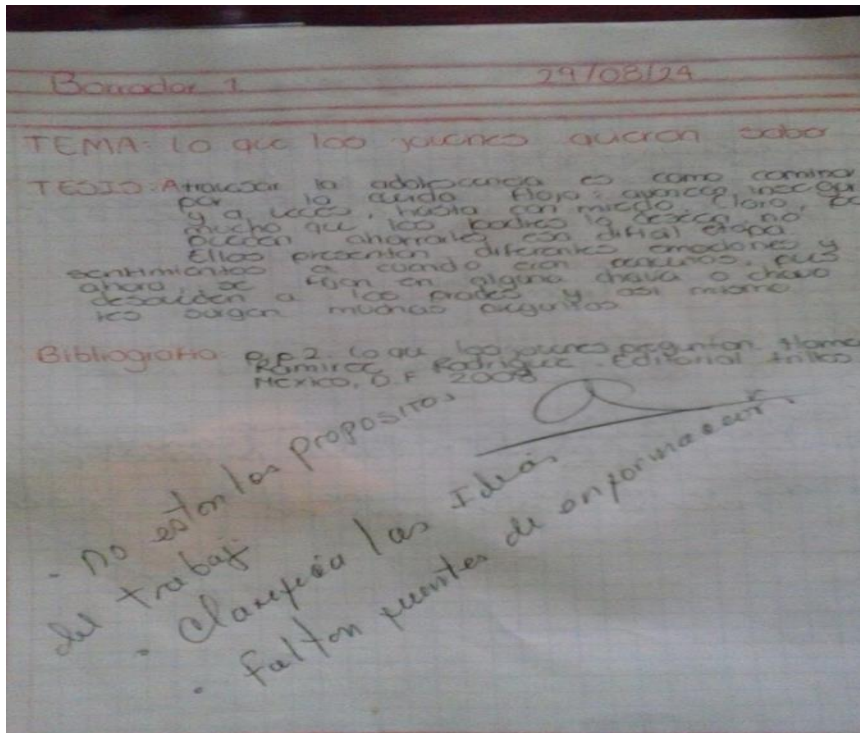 Borrador 1 29/08/24
TEMA: Lo que los jovenes quieren saber
TESIS: Atravesar la adolescencia es como caminar
por la cuerda floja: avances, inseguri
y a veces, hasta con miedo. Claro, po
mucho que los padres lo deseen, no
pueden ahorrarles esa dificil etapa.
Ellos presentan diferentes emociones y
sentimientos a cuando eran pequeños, pues
ahora se fijan en alguna chava o chavo
descuiden a los padres y asi mismo
les surgen muchas preguntas
Bibliografia P.p 2. Lo que los jovenes preguntan
Ramirez Rodriguez. Editorial trillas
Mexico, D.F 2008
- no estan los propositos
del trabajo
- Clarifica las Ideas
- Faltan fuentes de información.